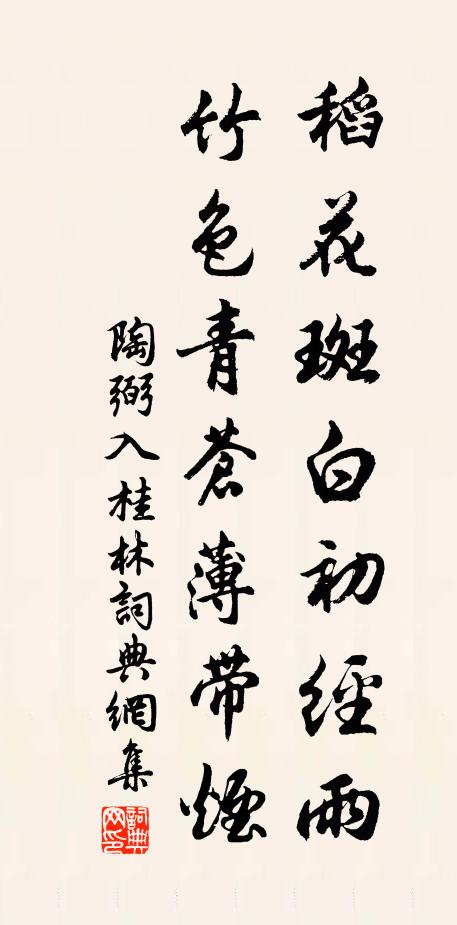 稻花斑白初經雨
竹色青蒼薄帶煙
陶弼入桂林詞典網集
詞典网印